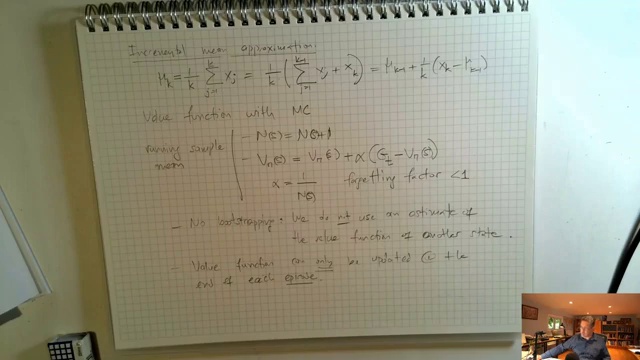 Incremental mean approximation:
μ_k = 1/k Σ_{j=1}^{k} x_j = 1/k ( Σ_{j=1}^{k-1} x_j + x_k ) = μ_{k-1} + 1/k (x_k - μ_{k-1})
Value function with MC
running sample mean
- N(s) = N(s)+1
- V_π(s) = V_π(s) + α (G_t - V_π(s))
α = 1/N(s) forgetting factor < 1
- No bootstrapping: We do not use an estimate of
the value function of another state.
- Value function can only be updated @ the
end of each episode.